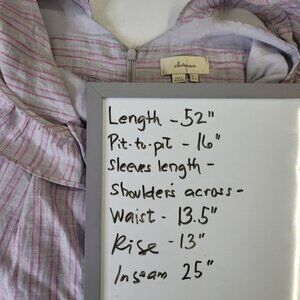 Length - 52"
Pit-to-pit - 16"
Sleeves length -
Shoulders across -
Waist - 13.5"
Rise - 13"
Inseam 25"